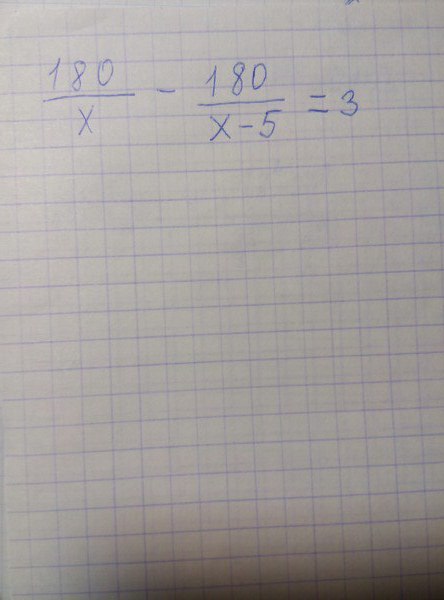 180/x - 180/(x-5) = 3